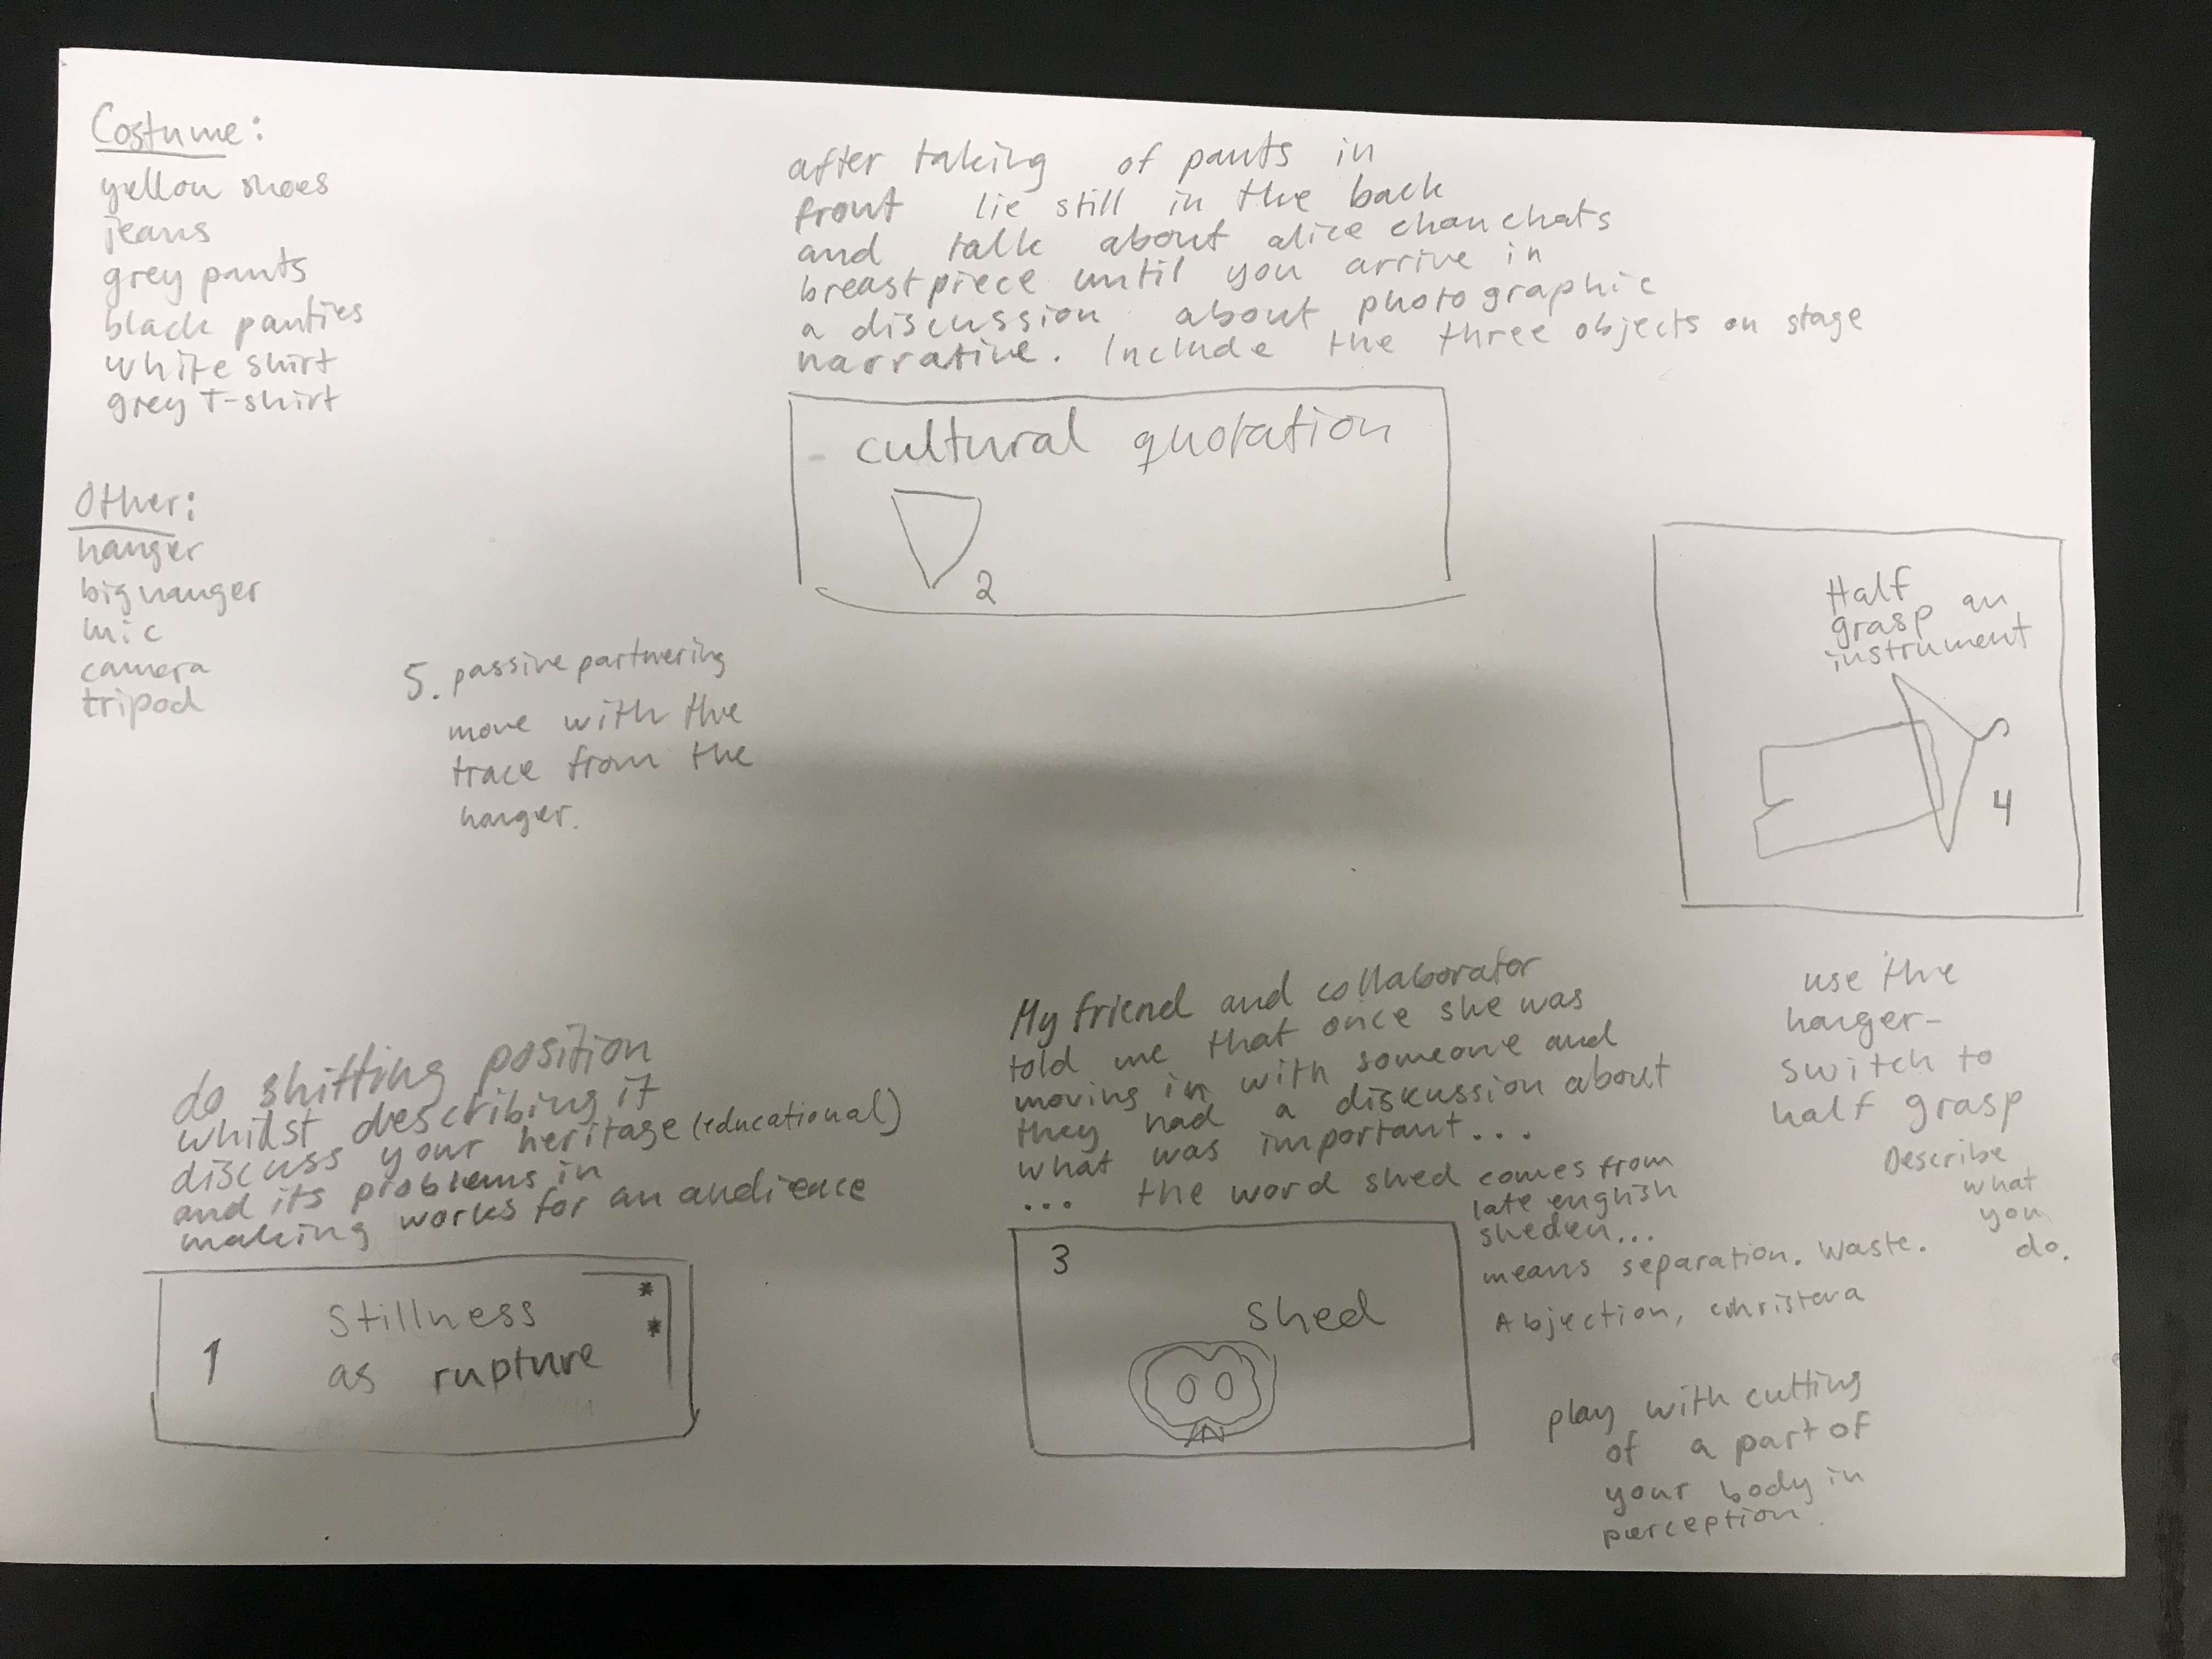 Costume:
yellow shoes
jeans
grey pants
black panties
white shirt
grey T-shirt
Other:
hanger
big hanger
mic
camera
tripod
after taking of pants in
front lie still in the back
and talk about alice chauchats
breastpiece until you arrive in
a discussion about photographic
narrative. Include the three objects on stage
cultural quotation
2
Half
grasp an
instrument
4
5. passive partnering
move with the
trace from the
hanger.
do shifting position
whilst describing it
discuss your heritage (educational)
and its problems in
making works for an audience
1
Stillness
as rupture
*
*
My friend and collaborator
told me that once she was
moving in with someone and
they had a diskussion about
what was important...
... the word shed comes from
late english
sheden...
means separation. Waste.
Abjection,
3
Shed
use the
hanger-
switch to
half grasp
Describe
what
you
do.
play with cutting
of a part of
your body in
perception.